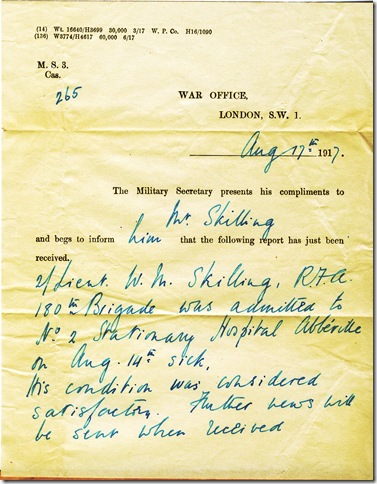 (14) Wt. 16640/H3699 30,000 3/17 W. P. Co. H16/1090
(136) W3774/H4617 60,000 6/17
M. S. 3.
Cas.
265
WAR OFFICE,
LONDON, S.W. 1.
Aug 17th 1917.
The Military Secretary presents his compliments to
Mr Skilling
and begs to inform him that the following report has just been
received.
2/Lieut. W. M. Skilling, R.F.A.
180th Brigade was admitted to
No 2 Stationary Hospital Abbéville
on Aug. 14th sick,
His condition was considered
satisfactory. Further news will
be sent when received